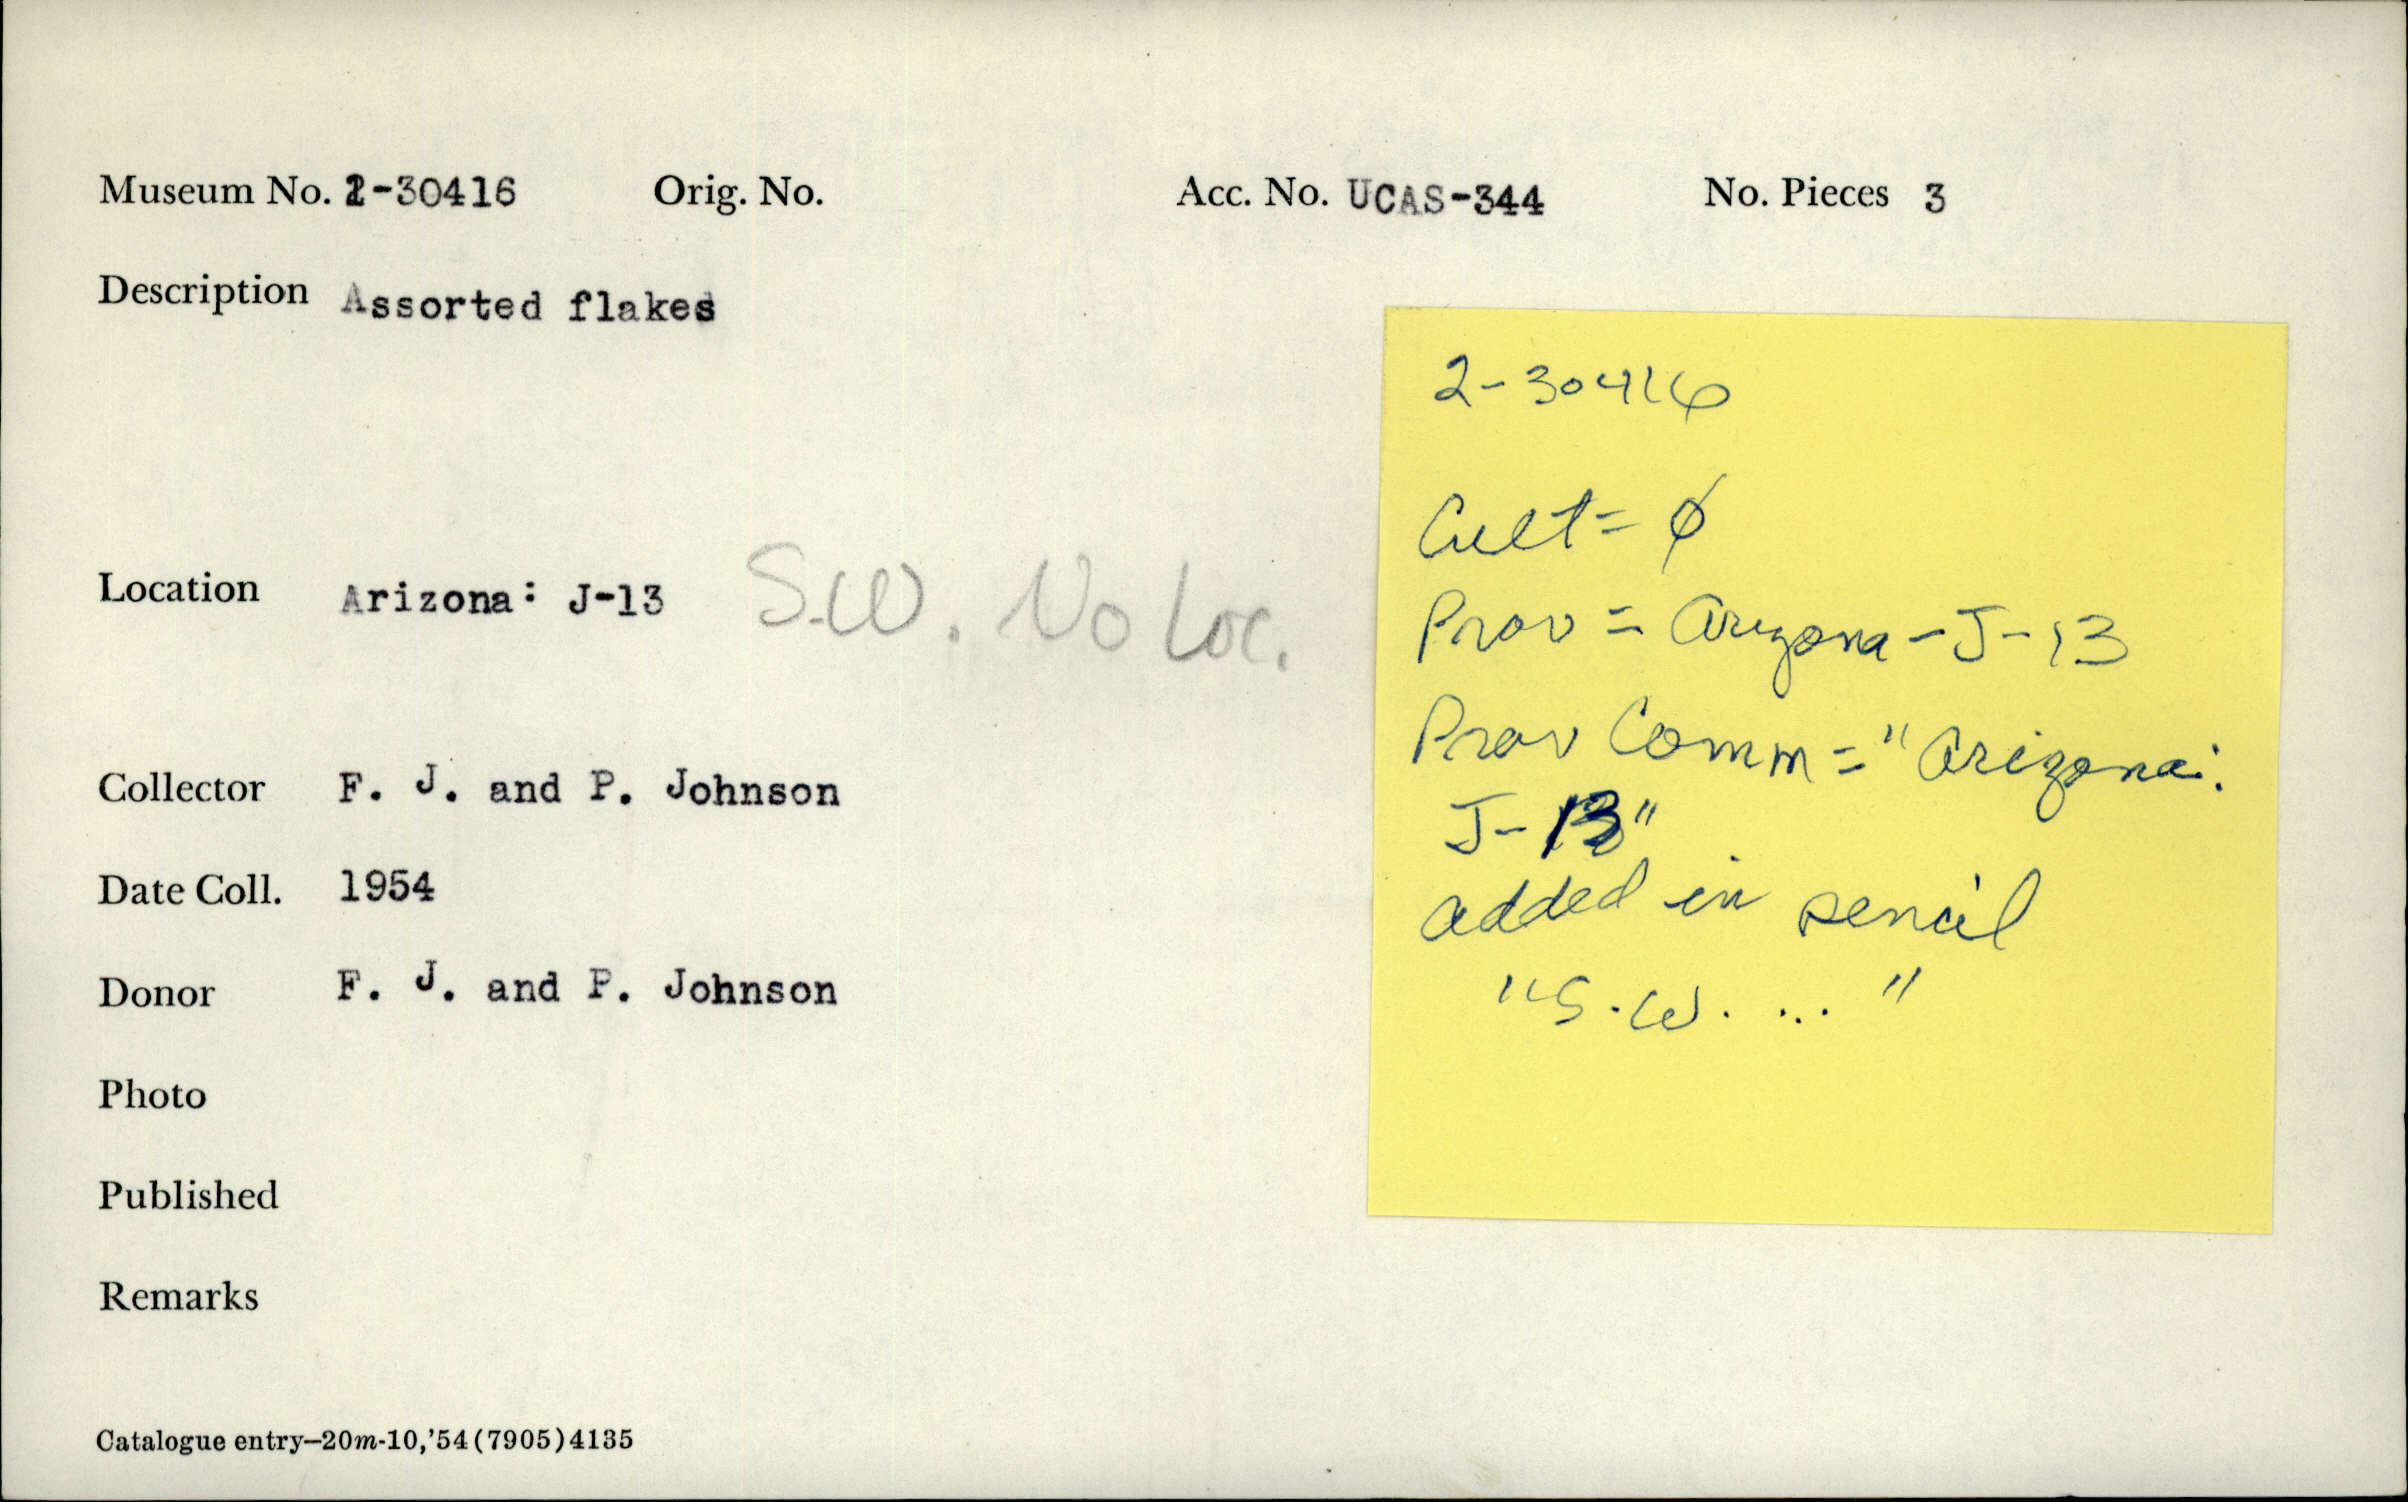 Museum No. 2-30416 Orig. No. Acc. No. UCAS-344 No. Pieces 3
Description Assorted flakes
Location Arizona: J-13 S.W. No Loc.
Collector F. J. and P. Johnson
Date Coll. 1954
Donor F. J. and P. Johnson
Photo
Published
Remarks
Catalogue entry—20m-10,'54(7905)4135
2-30416
Cult = ϕ
Prov = Arizona - J-13
Prov Comm = "Arizona:
J-13"
added in pencil
"S.W. ..."